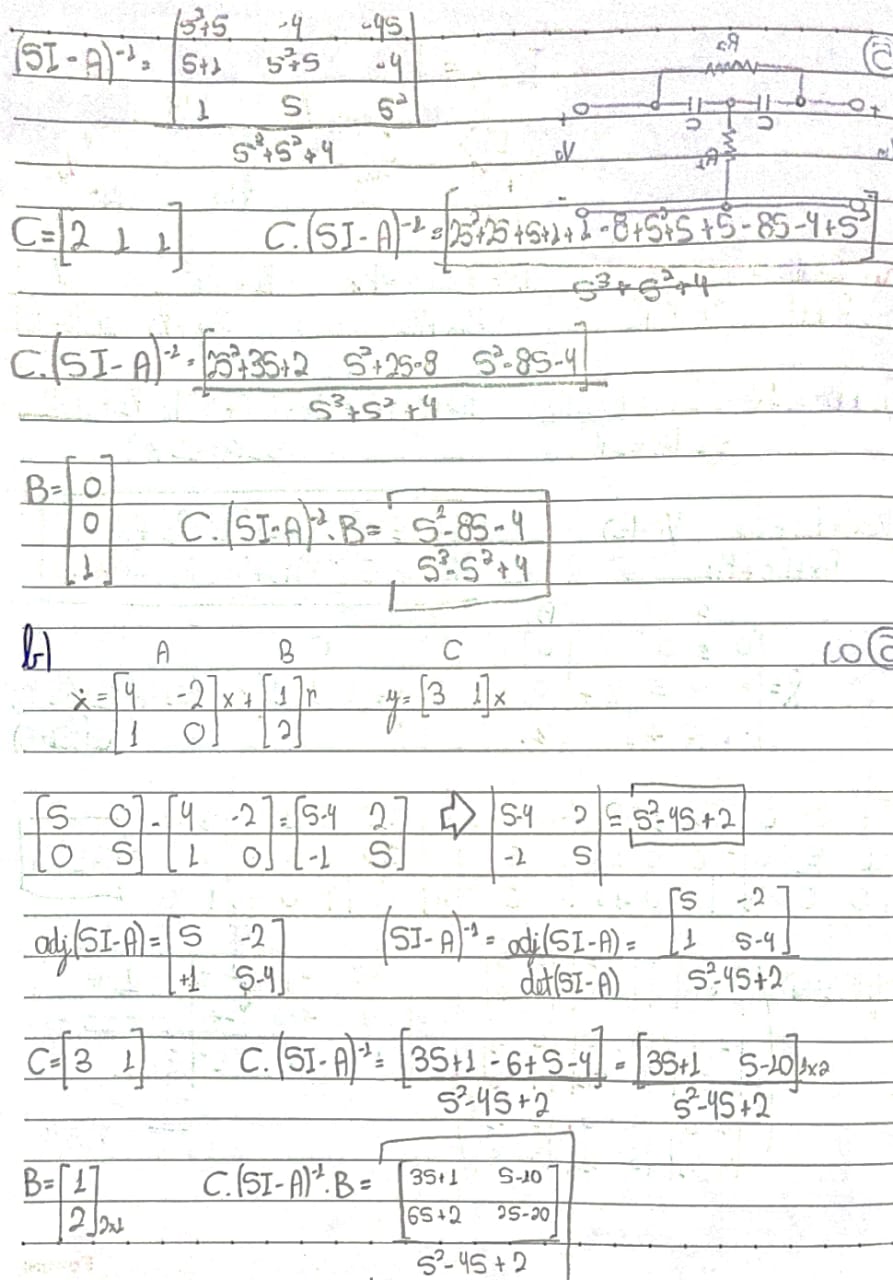 (SI-A)⁻¹ = | S²+S -4 -4S |
| S+1 S²+S -4 |
| 1 S S² |
S³+S²+4
C=[2 1 1] C.(SI-A)⁻¹ = [2S²+2S+S+1+1 -8+S²+S+S -8S-4+S²]
S³+S²+4
C.(SI-A)⁻¹ = [2S²+3S+2 S²+2S-8 S²-8S-4]
S³+S²+4
B= [0
0
1]
C.(SI-A)⁻¹.B= S²-8S-4
S³-S²+4
b) A B C
ẋ = [4 -2] x + [1] r y= [3 1] x
[1 0] [2]
[S 0] - [4 -2] = [S-4 2] ⇒ |S-4 2| = S²-4S+2
[0 S] [1 0] [-1 S] |-1 S|
adj(SI-A) = [S -2] (SI-A)⁻¹ = adj(SI-A) = [S -2]
[+1 S-4] det(SI-A) [1 S-4]
S²-4S+2
C=[3 1] C.(SI-A)⁻¹ = [3S+1 -6+S-4] = [3S+1 S-10]1x2
S²-4S+2 S²-4S+2
B= [1] C.(SI-A)⁻¹.B = [3S+1 S-10]
[2]2x1 [6S+2 2S-20]
S²-4S+2